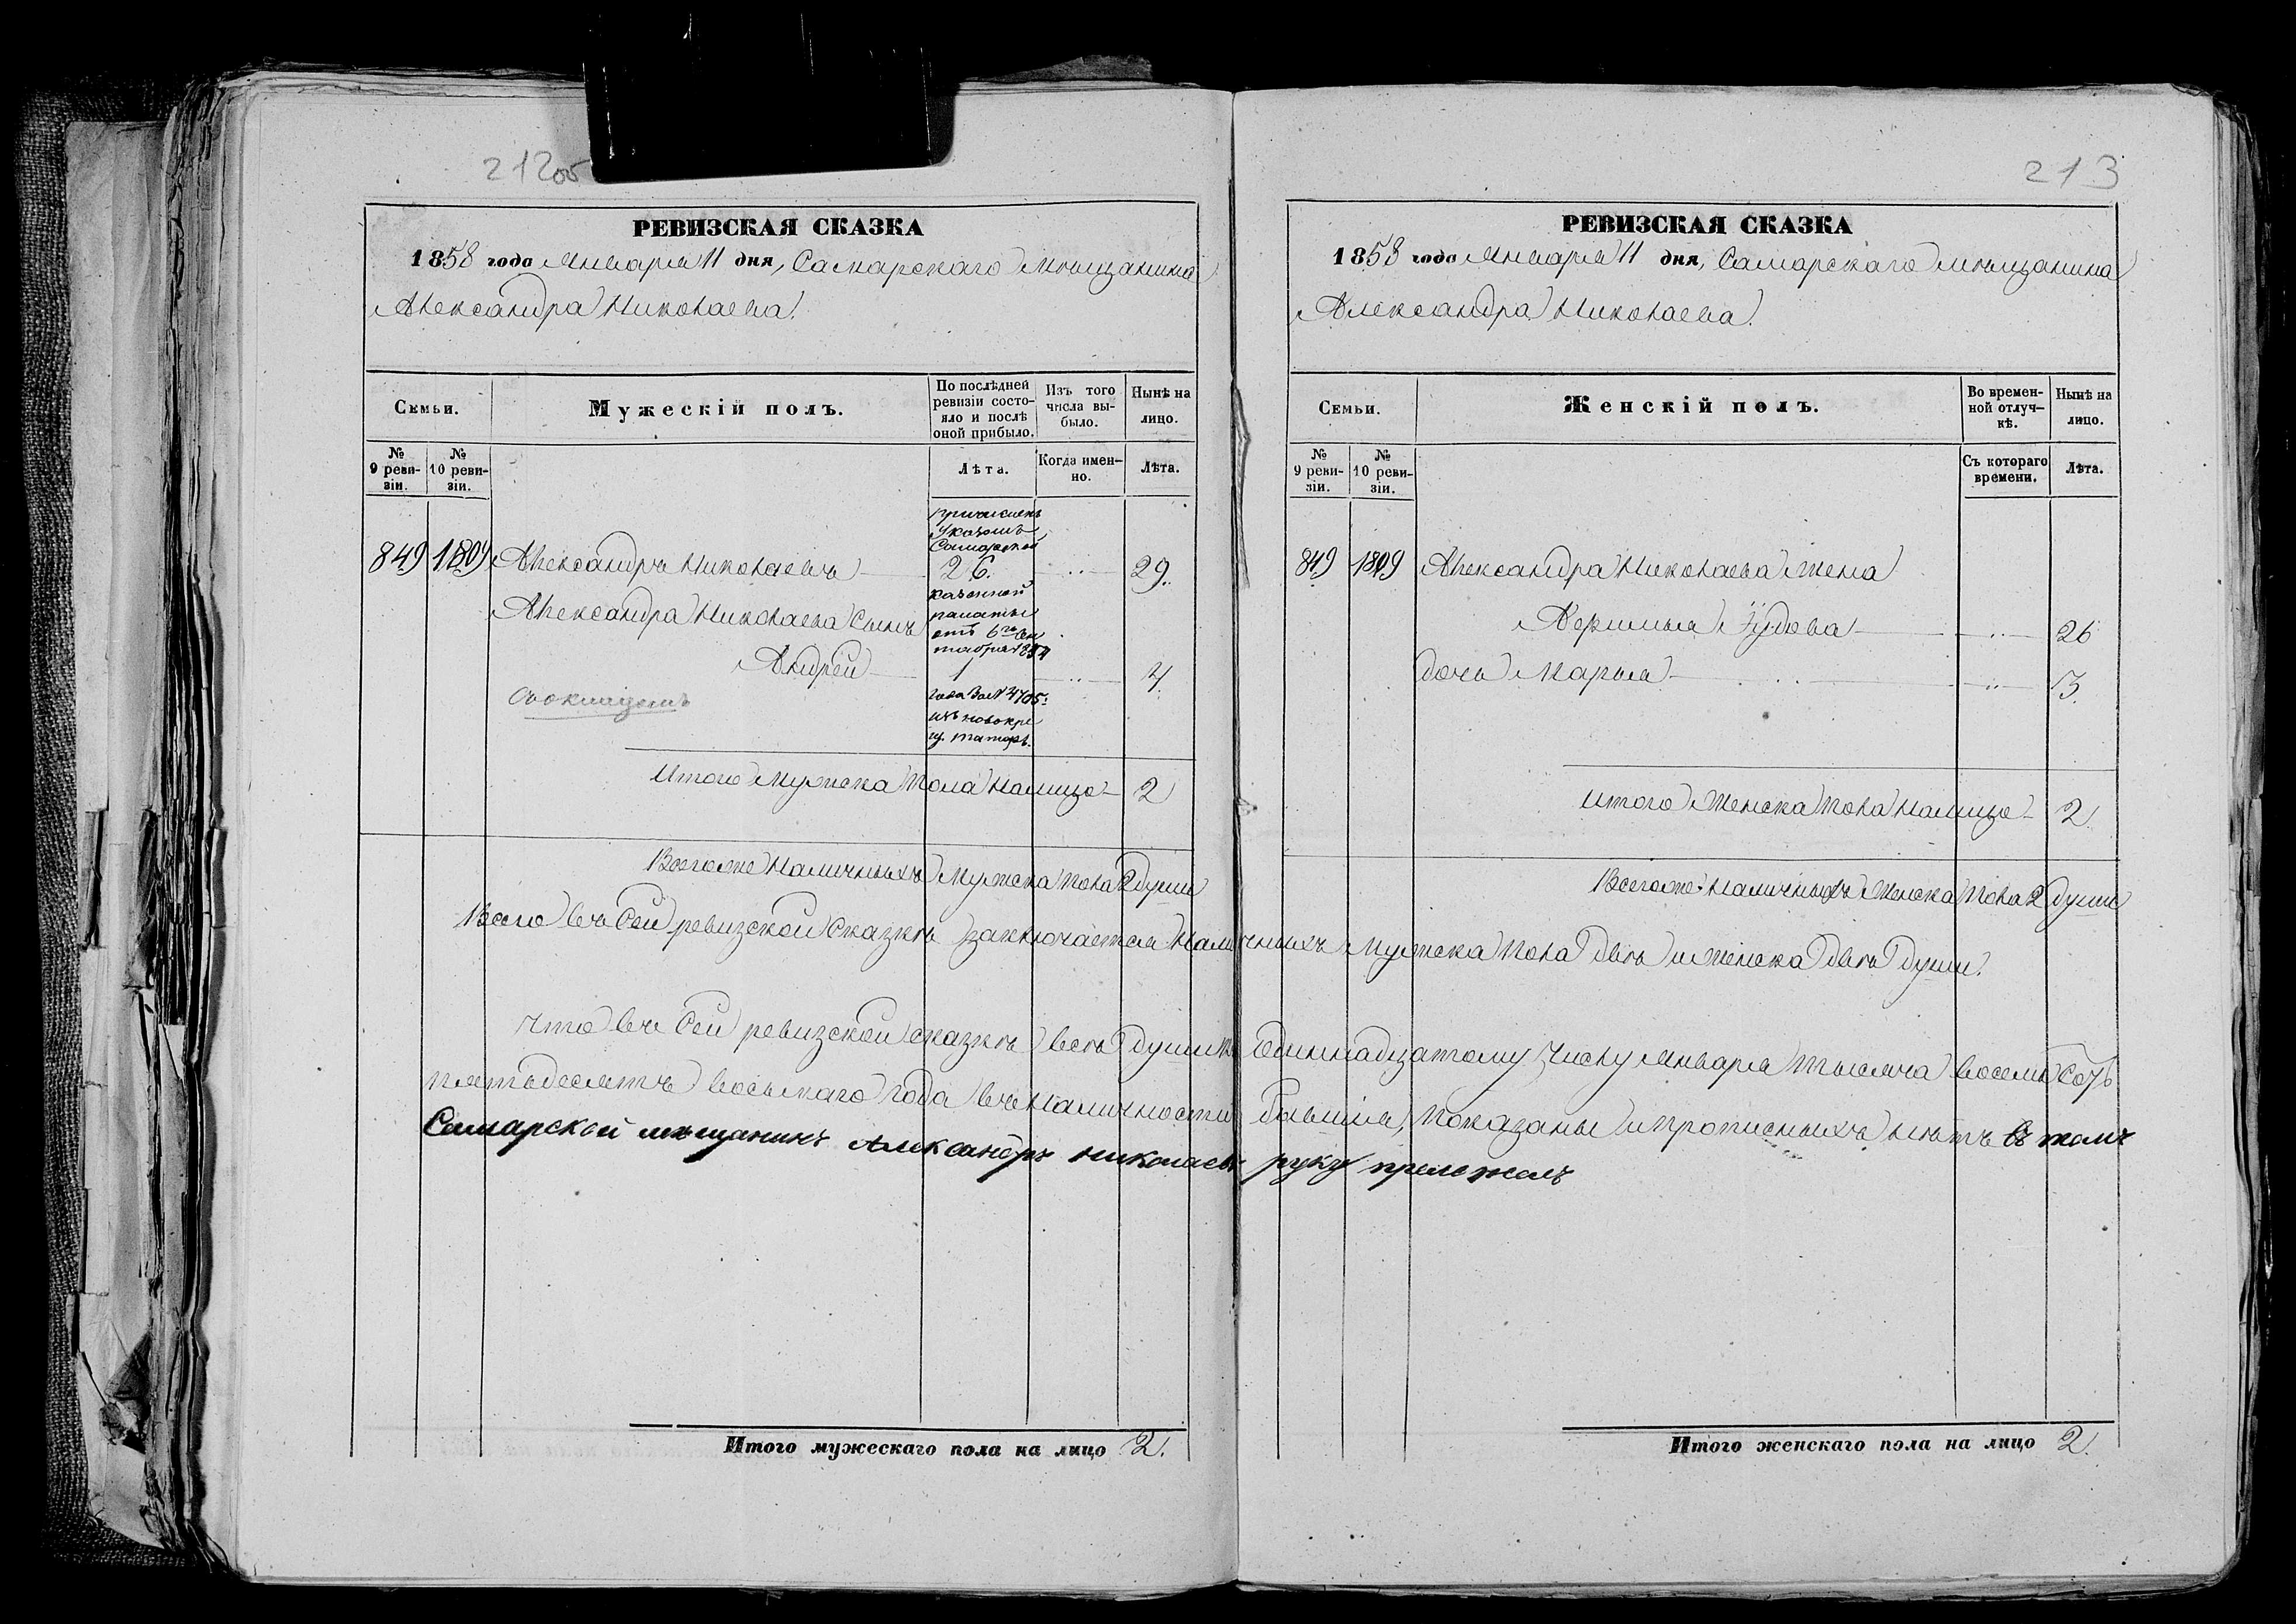 212об
РЕВИЗСКАЯ СКАЗКА
1858 года Января 11 дня, Самарскаго мѣщанина
Александра Николаева.
Семьи.
Мужескій полъ.
По послѣдней ревизіи состо-
яло и послѣ
оной прибыло.
Изъ того
числа вы-
было.
Нынѣ на
лицо.
№
9 реви-
зіи.
№
10 реви-
зіи.
Лѣта.
Когда имен-
но.
Лѣта.
причисленъ
Указомъ
Самарской
849 1809 Александръ Николаевъ 26. 29.
казенной
Александра Николаева сынъ палаты
отъ 6го Сен
тября 1854
Андрей 1 4.
года за № 4705:
изъ новокре
щ. татаръ.
Итого Мужска пола налицо 2
Всего же наличныхъ Мужска пола 2 души
213
РЕВИЗСКАЯ СКАЗКА
1858 года Января 11 дня, Самарскаго мѣщанина
Александра Николаева.
Семьи.
Женскій полъ.
Во времен-
ной отлуч-
кѣ.
Нынѣ на
лицо.
№
9 реви-
зіи.
№
10 реви-
зіи.
Съ котораго
времени.
Лѣта.
849 1809 Александра Николаева жена
26
дочь Марья 3.
Итого Женска пола налицо 2.
Всего же наличныхъ Женска пола 2 души
Всего въ сей ревизской сказкѣ заключается наличныхъ Мужска пола двѣ и Женска двѣ души.
Что въ сей ревизской сказкѣ всѣ души къ Одиннадцатому числу Января тысяча восемь сотъ
пятьдесятъ восьмаго года въ наличности бывшія, показаны и прописныхъ нѣтъ въ томъ
Самарской мещанинъ Александръ николаевъ руку преложелъ
Итого мужескаго пола на лицо 2.
Итого женскаго пола на лицо 2.